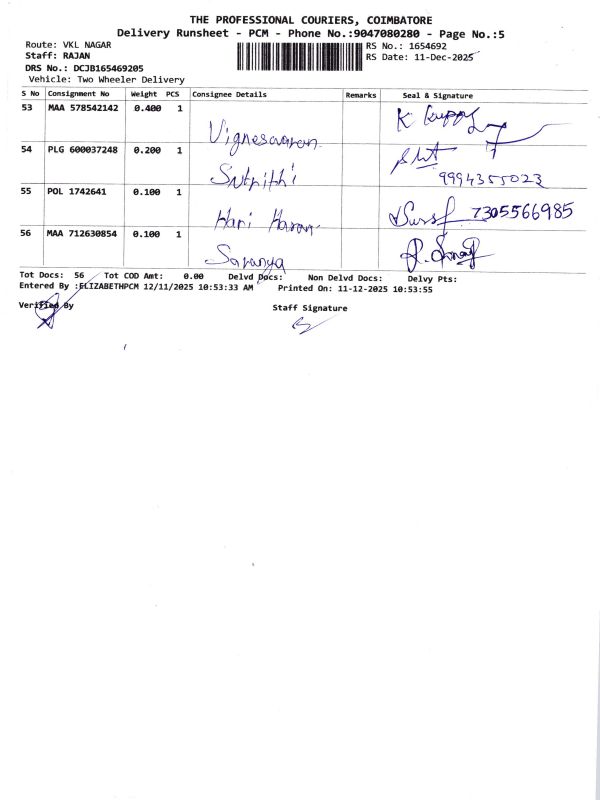 THE PROFESSIONAL COURIERS, COIMBATORE
Delivery Runsheet - PCM - Phone No.:9047080280 - Page No.:5
Route: VKL NAGAR RS No.: 1654692
Staff: RAJAN RS Date: 11-Dec-2025
DRS No.: DCJB165469205
Vehicle: Two Wheeler Delivery
S No Consignment No Weight PCS Consignee Details Remarks Seal & Signature
53 MAA 578542142 0.400 1 Vignesavaran
54 PLG 600037248 0.200 1 9994355023
55 POL 1742641 0.100 1 Hari Haran 7305566985
56 MAA 712630854 0.100 1 Saranya
Tot Docs: 56 Tot COD Amt: 0.00 Delvd Docs: Non Delvd Docs: Delvy Pts:
Entered By :ELIZABETHPCM 12/11/2025 10:53:33 AM Printed On: 11-12-2025 10:53:55
Verified By Staff Signature